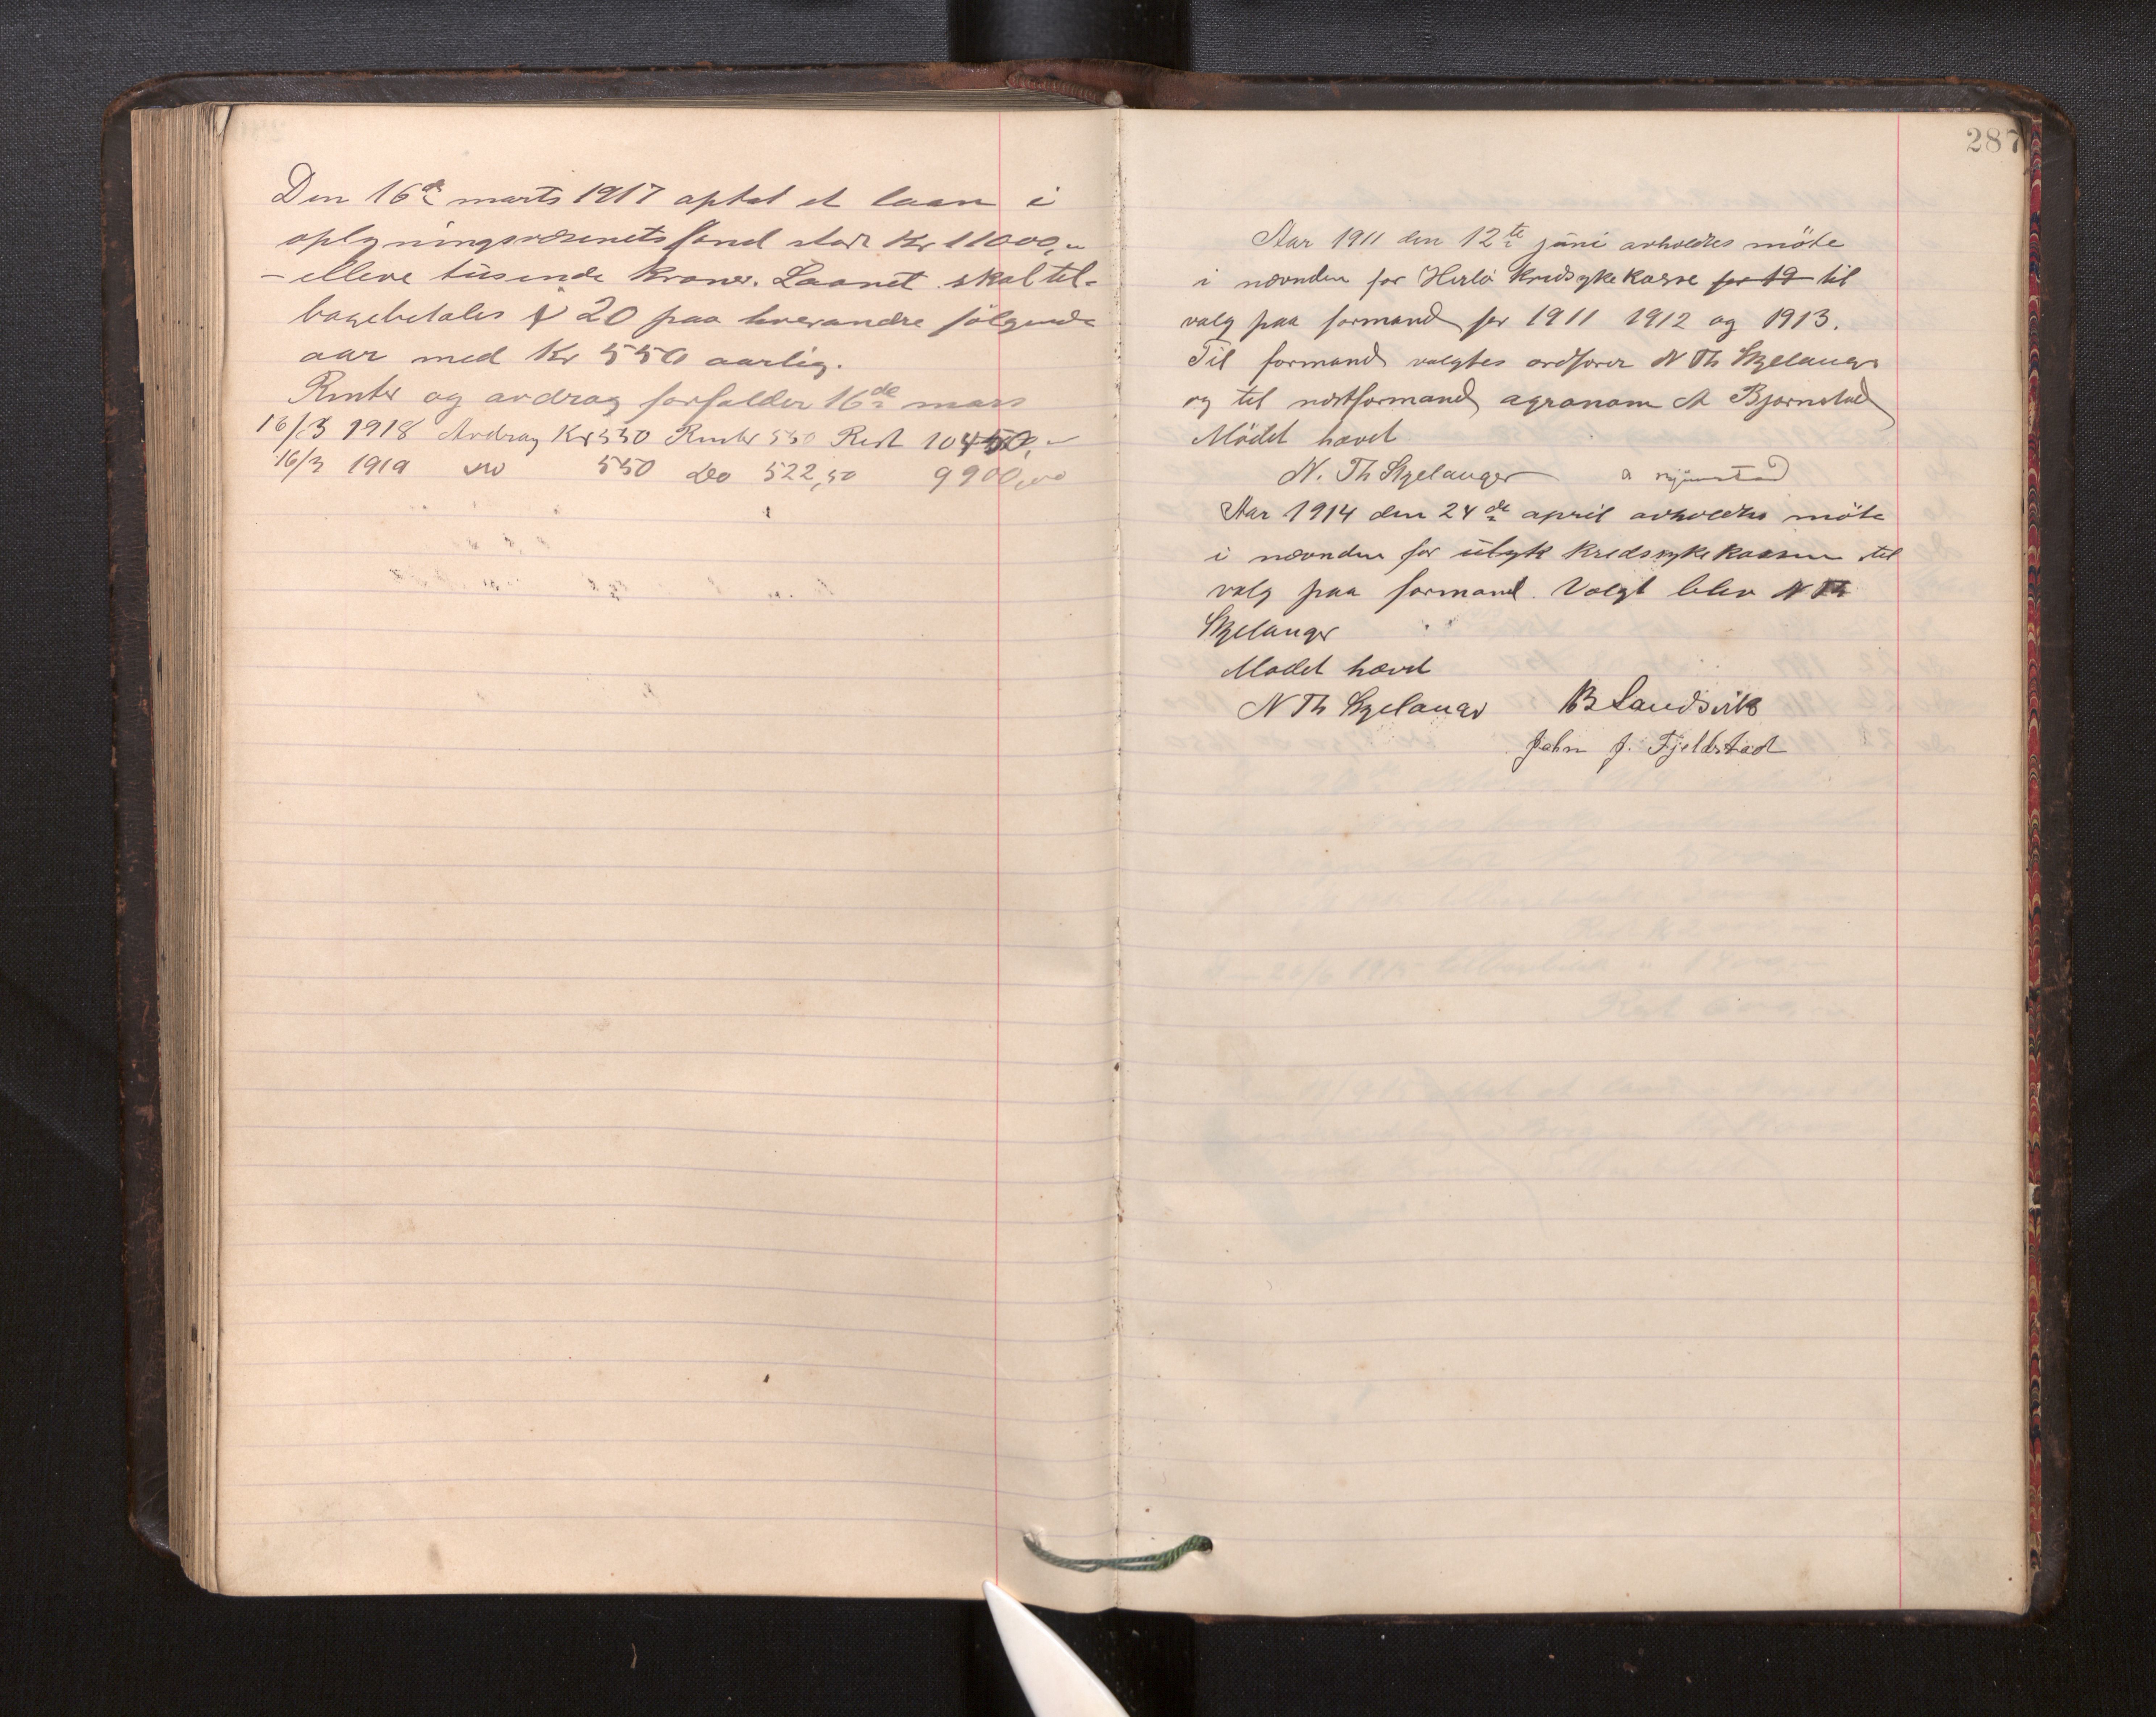 Den 16de marts 1917 optat et laan i
oplysningsvæsenets fond stort Kr 11000,-
- elleve tusende kroner. Laanet skal til-
bagebetales i 20 paa hverandre følgende
aar med Kr 550 aarlig.
Renter og avdrag forfalder 16de mars
16/3 1918 Avdrag Kr 550 Renter 550 Rest 10450,-
16/3 1919 do 550 Do 522,50 9900,00
287
Aar 1911 den 12te juni avholdtes möte
i nævnden for Herlö Kredssykekasse for 19 til
valg paa formand for 1911 1912 og 1913.
Til formand valgtes ordfører N Th Skjelanger
og til næstformand agronom A Bjørnstad
Mödet hævet
N. Th Skjelanger A Bjørnstad
Aar 1914 den 24de april avholdtes möte
i nævnden for kredssykekassen til
valg paa formand. Valgt blev N Th
Skjelanger
Mødet hævet
N Th Skjelanger B Landsvik
John J. Fjeldstad